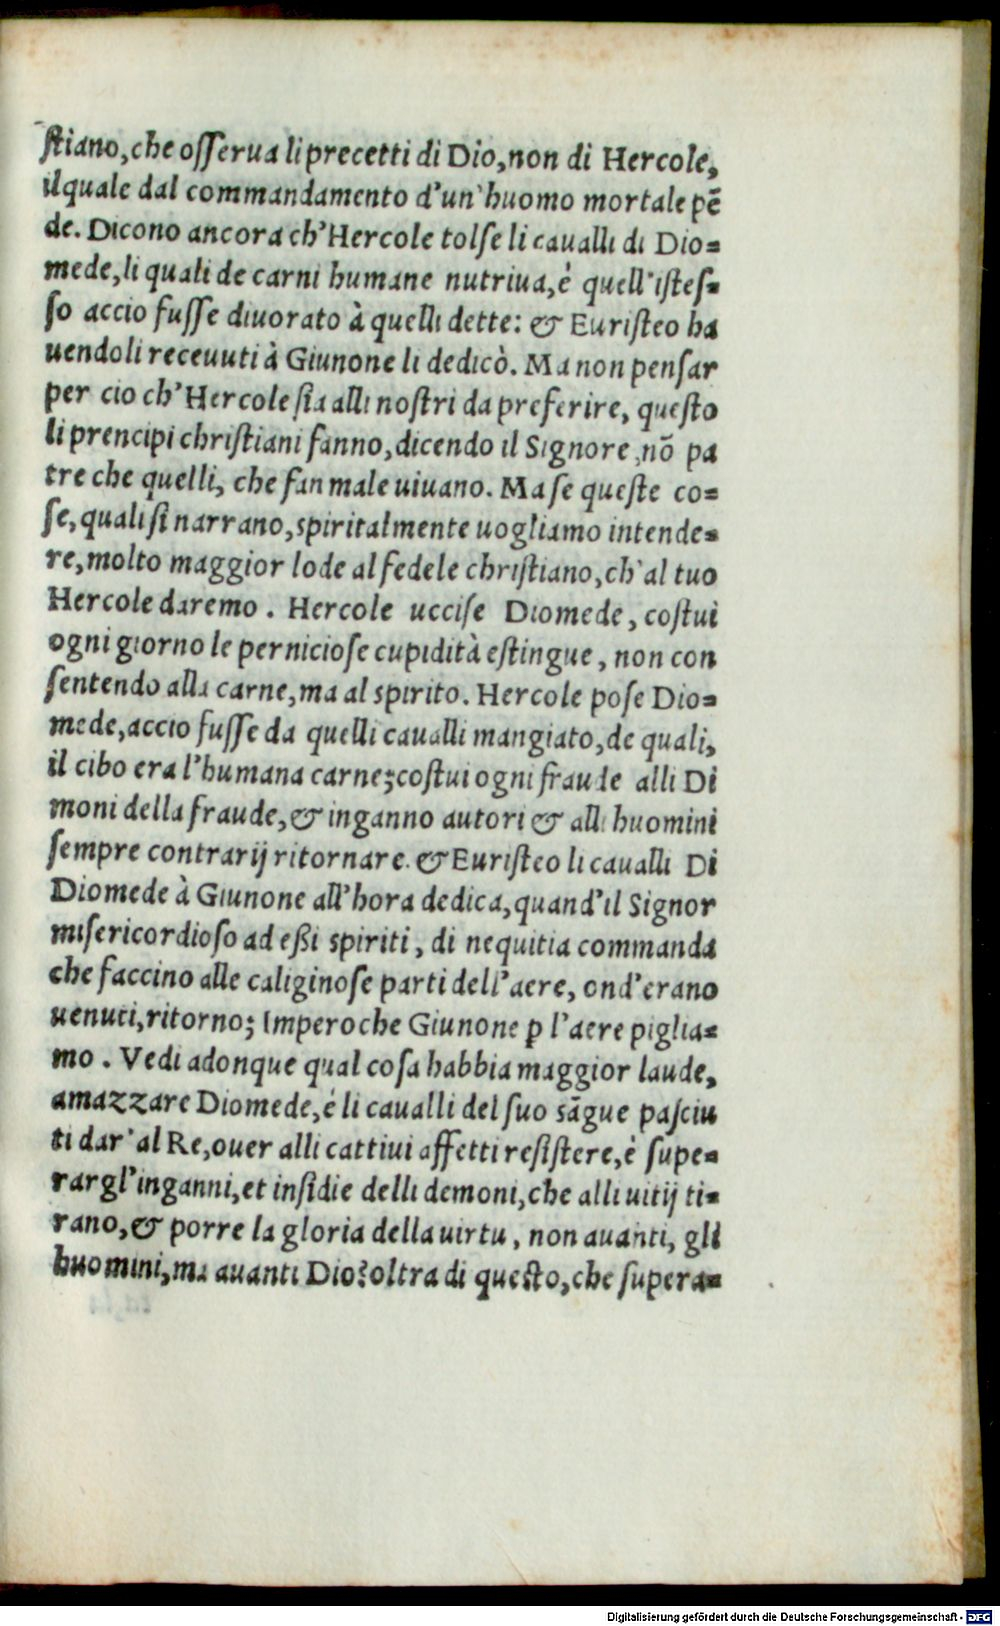 stiano, che osserua li precetti di Dio, non di Hercole,
ilquale dal commandamento d'un'huomo mortale pē
de. Dicono ancora ch'Hercole tolse li caualli di Dio=
mede, li quali de carni humane nutriua, è quell'istes=
so accio fusse diuorato à quelli dette: & Euristeo ha
uendoli receuuti à Giunone li dedicò. Ma non pensar
per cio ch'Hercole sia alli nostri da preferire, questo
li prencipi christiani fanno, dicendo il Signore, nō pa
tre che quelli, che fan male uiuano. Ma se queste co=
se, quali si narrano, spiritalmente uogliamo intende=
re, molto maggior lode al fedele christiano, ch'al tuo
Hercole daremo. Hercole uccise Diomede, costui
ogni giorno le perniciose cupidità estingue, non con
sentendo alla carne, ma al spirito. Hercole pose Dio=
mede, accio fusse da quelli caualli mangiato, de quali,
il cibo era l'humana carne; costui ogni fraude alli Di
moni della fraude, & inganno autori & alli huomini
sempre contrarij ritornare. & Euristeo li caualli Di
Diomede à Giunone all'hora dedica, quand'il Signor
misericordioso ad eßi spiriti, di nequitia commanda
che faccino alle caliginose parti dell'aere, ond'erano
uenuti, ritorno; Imperoche Giunone ꝑ l'aere piglia=
mo. Vedi adonque qual cosa habbia maggior laude,
amazzare Diomede, è li caualli del suo sāgue pasciu
ti dar'al Re, ouer alli cattiui affetti resistere, è supe=
rargl'inganni, et insidie delli demoni, che alli uitij ti=
rano, & porre la gloria della uirtu, non auanti, gli
huomini, ma auanti Dio? oltra di questo, che supera=
Digitalisierung gefördert durch die Deutsche Forschungsgemeinschaft - DFG